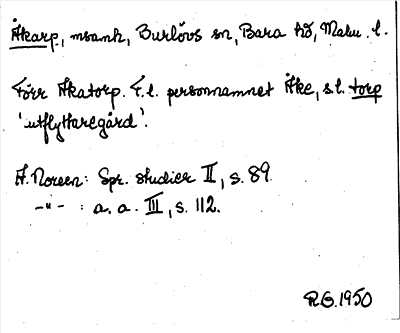 Åkarp, msamh, Burlövs sn, Bara hd, Malm. l.
Förr Åkatorp. F.l. personnamnet Åke, s.l. torp
'utflyttaregård'.
A. Noreen: Spr. studier II, s. 89.
-"- : a. a. III, s. 112.
R G. 1950